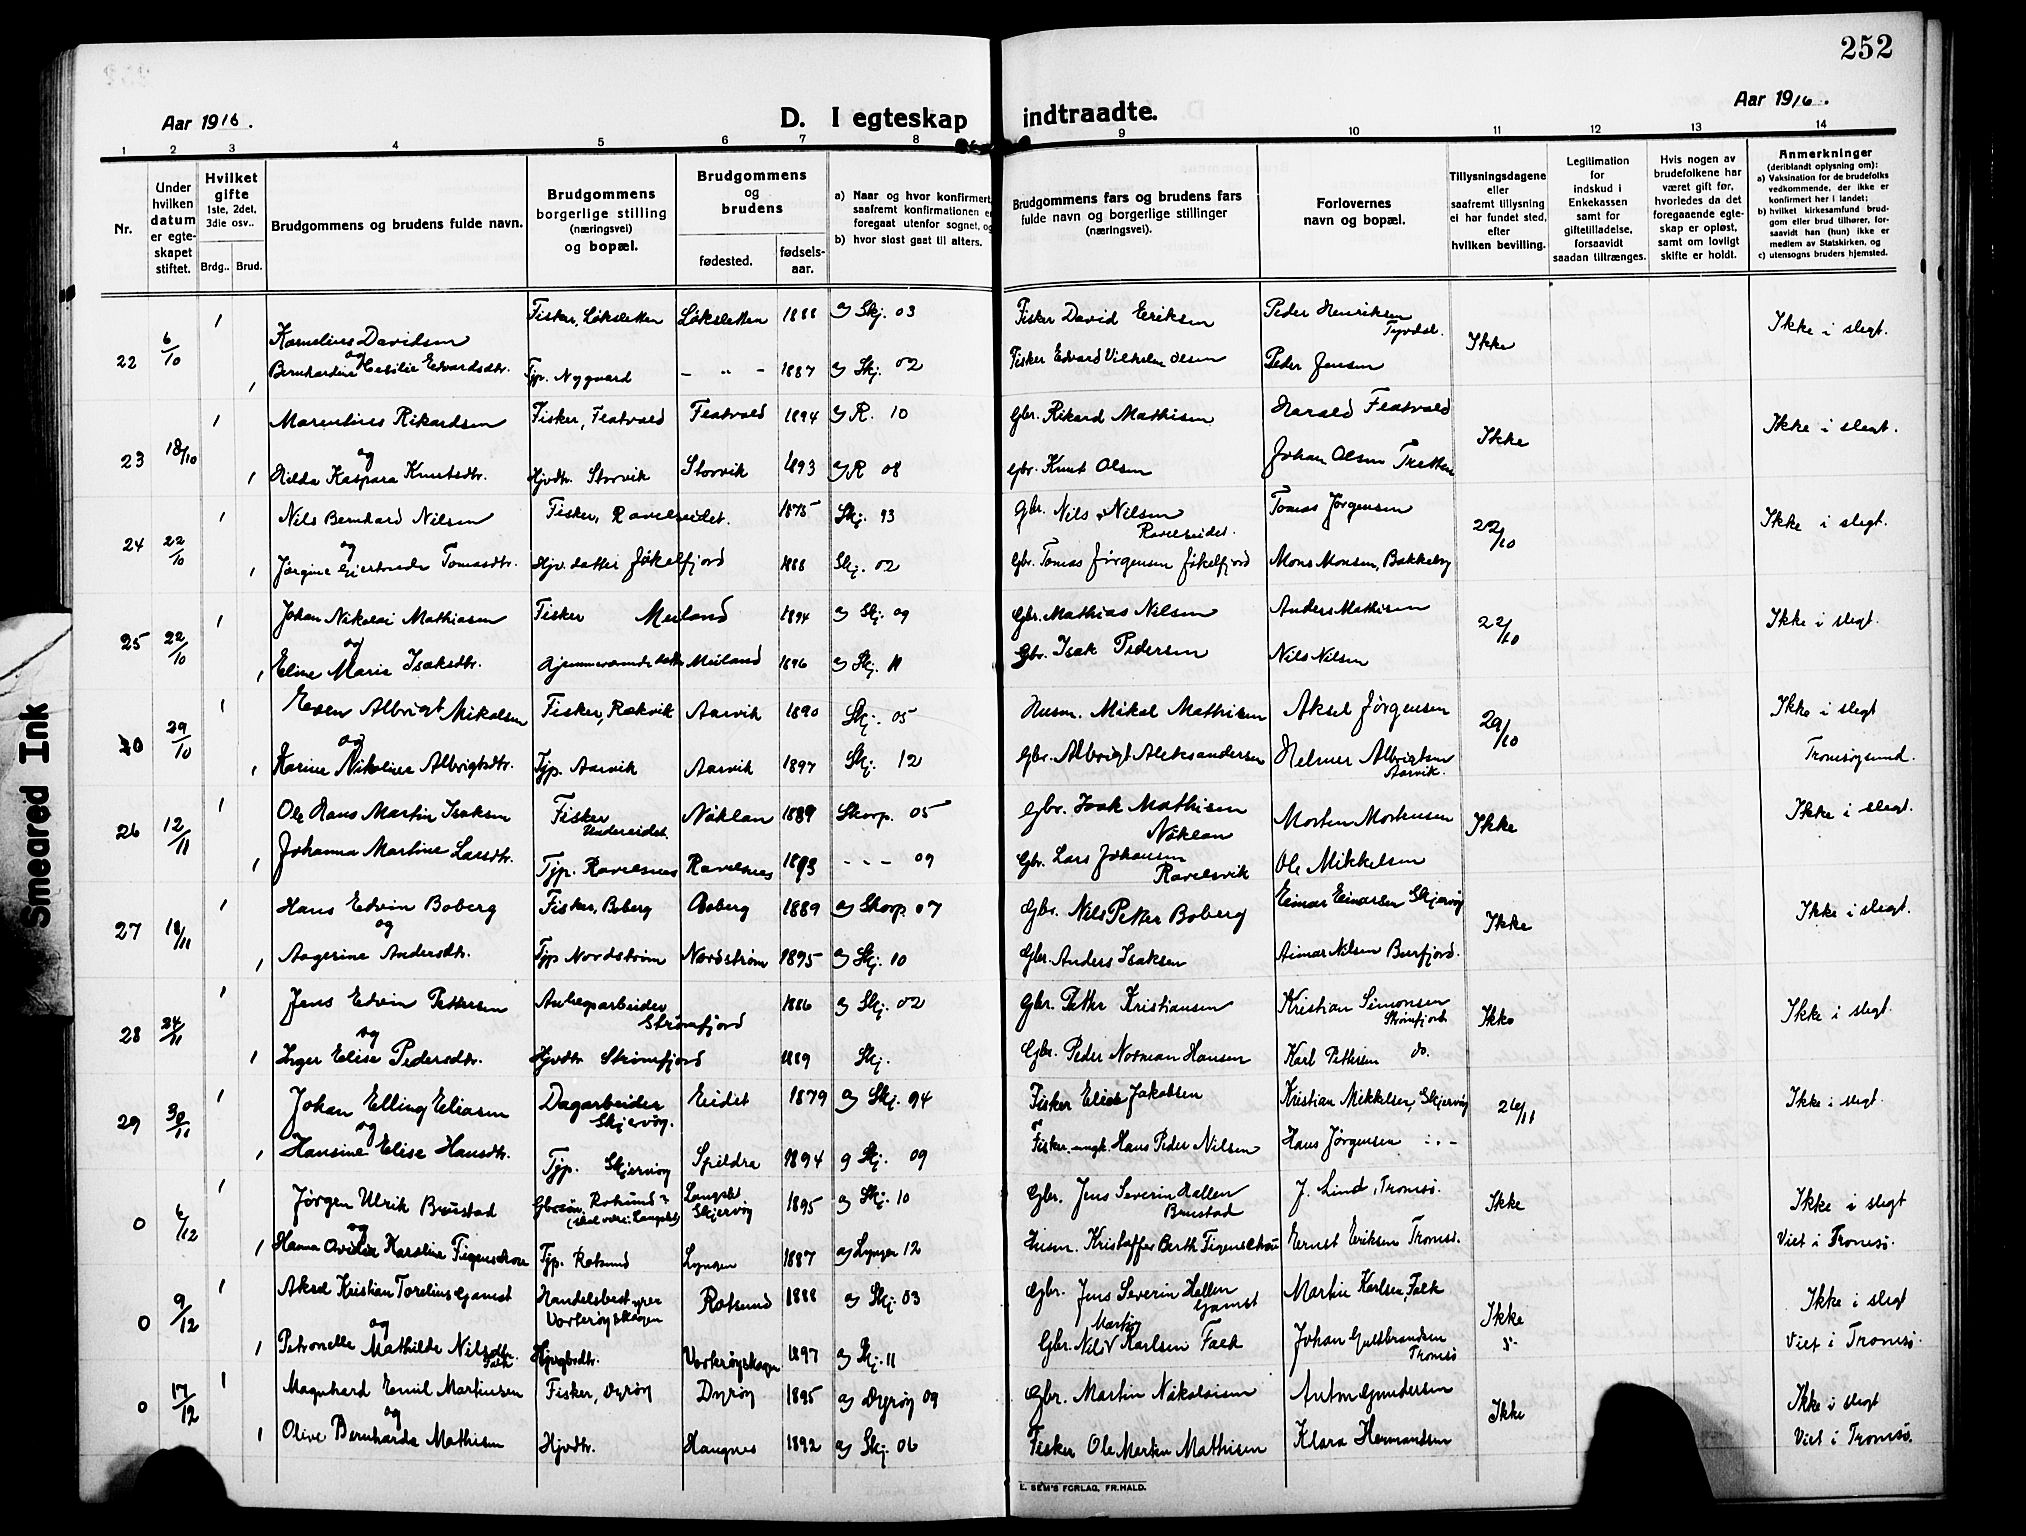 252
Aar 1916.
D. I egteskap indtraadte.
Aar 1916.
1 2 3 4 5 6 7 8 9 10 11 12 13 14
Nr.
Under hvilken datum er egteskapet stiftet.
Hvilket gifte 1ste, 2det, 3die osv..
Brdg.. Brud.
Brudgommens og brudens fulde navn.
Brudgommens borgerlige stilling (næringsvei) og bopæl.
Brudgommens og brudens
fødested. fødselsaar.
a) Naar og hvor konfirmert,
saafremt konfirmationen e
foregaat utenfor sognet, og
b) hvor sidst gaat til alters.
Brudgommens fars og brudens fars
fulde navn og borgerlige stillinger
(næringsvei).
Forlovernes navn og bopæl.
Tillysningsdagene eller saafremt tillysning ei har fundet sted, efter hvilken bevilling.
Legitimation for indskud i Enkekassen samt for giftetilladelse, forsaavidt saadan tiltrænges.
Hvis nogen av brudefolkene har været gift før, hvorledes da det foregaaende egteskap er opløst, samt om lovligt skifte er holdt.
Anmerkninger
(deriblandt oplysning om):
a) Vaksination for de brudefolks vedkommende, der ikke er konfirmert her i landet;
b) hvilket kirkesamfund brudgom eller brud tilhører, forsaavidt han (hun) ikke er medlem av Statskirken, og
c) utensogns bruders hjemsted.
22 6/10 1 Kornelius Davidsen Fisker, Løksletten Løksletten 1888 a) Skj. 03 Fisker David Eriksen Peder Henriksen Ikke Ikke i slegt.
og
1 Bernhardine Cesilie Edvardsdtr. Tjp. Nygaard - " - 1887 a) Skj. 02 Fisker Edvard Vilhelm Olsen Peder Jensen
23 18/10 1 Marselius Rikardsen Fisker, Flatvold Flatvold 1894 a) R. 10 Gbr. Rikard Mathisen Harald Flatvold Ikke Ikke i slegt.
og
1 Hilda Kaspara Knutsdtr. Hjvdtr. Storvik Storvik 1893 a) R 08 Gbr. Knut Olsen Johan Olsen Tretten
24 22/10 1 Nils Bernhard Nilsen Fisker, Ravelseidet. 1875 Skj. 93 Gbr. Nils Nilsen Ravelseidet. Tomas Jørgensen 22/10 Ikke i slegt.
og
1 Jørgine Giertrude Tomasdtr. Hjv. datter Jøkelfjord 1888 Skj. 02 Gbr. Tomas Jørgensen Jøkelfjord Mons Monsen, Bakkeby
25 22/10 1 Johan Nikolai Mathiasen Fisker Meiland 1894 a) Skj. 09 Gbr. Mathias Nilsen Anders Mathisen 22/10 Ikke i slegt.
og
1 Eline Marie Isaksdtr. Hjemmeværende datter Meiland 1896 a) Skj. 11 Gbr. Isak Pedersen Nils Nilsen
0 29/10 1 Albrigt Mikalsen Fisker, Rakvik Aarvik 1890 Skj. 05 Husm. Mikal Mathisen Aksel Jørgensen 29/10 Ikke i slegt
og
1 Karine Nikoline Albrigtsdtr. Tjp. Aarvik Aarvik 1897 Skj. 12 Gbr. Albrigt Aleksandersen Helmer Albrigtsen Aarvik. Tromsøysund.
26 12/11 1 Ole Hans Martin Isaksen Fisker Undereidet. Nøklan 1889 Skorp. 05 Gbr. Isak Mathisen Nøklan Morten Mortensen Ikke Ikke i slegt.
1 Johanna Martine Larsdtr. Tjp. Ravelsnes Ravelsnes 1893 - - - 09 Gbr. Lars Johansen Ravelsvik Ole Mikkelsen
27 18/11 1 Hans Edvin Boberg Fisker, Boberg Boberg 1889 a) Skorp. 07 Gbr. Nils Petter Boberg Einar Einarsen Skjervøy Ikke Ikke i slegt.
og
1 Aagerine Andersdtr. Tjp Nordstrøm Nordstrøm 1895 a) Skj. 10 Gbr. Anders Isaksen Aimar Nilsen Burfjord.
28 24/11 1 Jens Edvin Pettersen Anlegsarbeider Strømfjord 1886 a) Skj. 02 Gbr. Petter Kristiansen Kristian Simonsen Strømfjord Ikke Ikke i slegt.
og
1 Inger Elise Pedersdtr. Hjvdtr Strømfjord 1889 Skj. Gbr. Peder Norman Hansen Karl Pettersen do.
29 30/11 1 Johan Elling Eliasen Dagarbeider Skjervøy. Eidet 1879 a) Skj. 94 Fisker Elias Jakobsen Kristian Mikkelsen, Skjervøy 26/11 Ikke i slegt.
og
1 Hansine Elise Hansdtr. Tjp. Skjervøy Spildra 1894 a Skj. 09 Fisker. ungk. Hans Peder Nilsen Hans Jørgensen - " -
0 6/12 1 Jørgen Ulrik Brustad Gbrsøn, Rotsund (skal være: Langslet) Langslet Skjervøy 1895 a) Skj. 10 Gbr. Jens Severin Hallen Brustad J. Lind, Tromsø. Ikke Ikke i slegt
og
1 Hanna Ovilie Karoline Figenschou Tjp. Rotsund Lyngen 1887 a) Lyngen 12 Husm. Kristoffer Berth Figenschou Ernst Eriksen Tromsø. Viet i Tromsø.
0 9/12 1 Aksel Kristian Torelius Gamst Handelsbestyrer Vorterøyskagen Rotsund 1888 a) Skj. 03 Gbr. Jens Severin Hallen Gamst Martin Karlsen, Falk Ikke Ikke i slegt
og
1 Petronelle Mathilde Nilsdtr. Falk Hjvgbrdtr. Vorterøyskagen 1897 a) Skj. 11 Gbr. Nils Martin Karlsen Falk Johan Guldbrandsen Tromsø Viet i Tromsø.
0 17/12 1 Magnhard Emil Martinsen Fisker, Dyrøy Dyrøy 1895 a) Dyrøy 09 Gbr. Martin Nikolaisen Anton Gundersen Ikke Ikke i slegt
og
1 Olive Bernharda Mathisen Hjvdtr. Haugnes 1892 a) Skj. 06 Fisker Ole Martin Mathisen Klara Hermandsen Viet i Tromsø.
E. SEM'S FORLAG, FR.HALD.
Smeared Ink